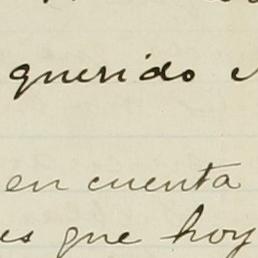 querido
en cuenta
es que hoy